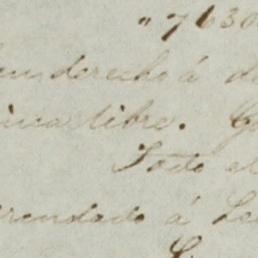 " 7630
un derecho á d
inca libre.
Todo el
rendado á Le